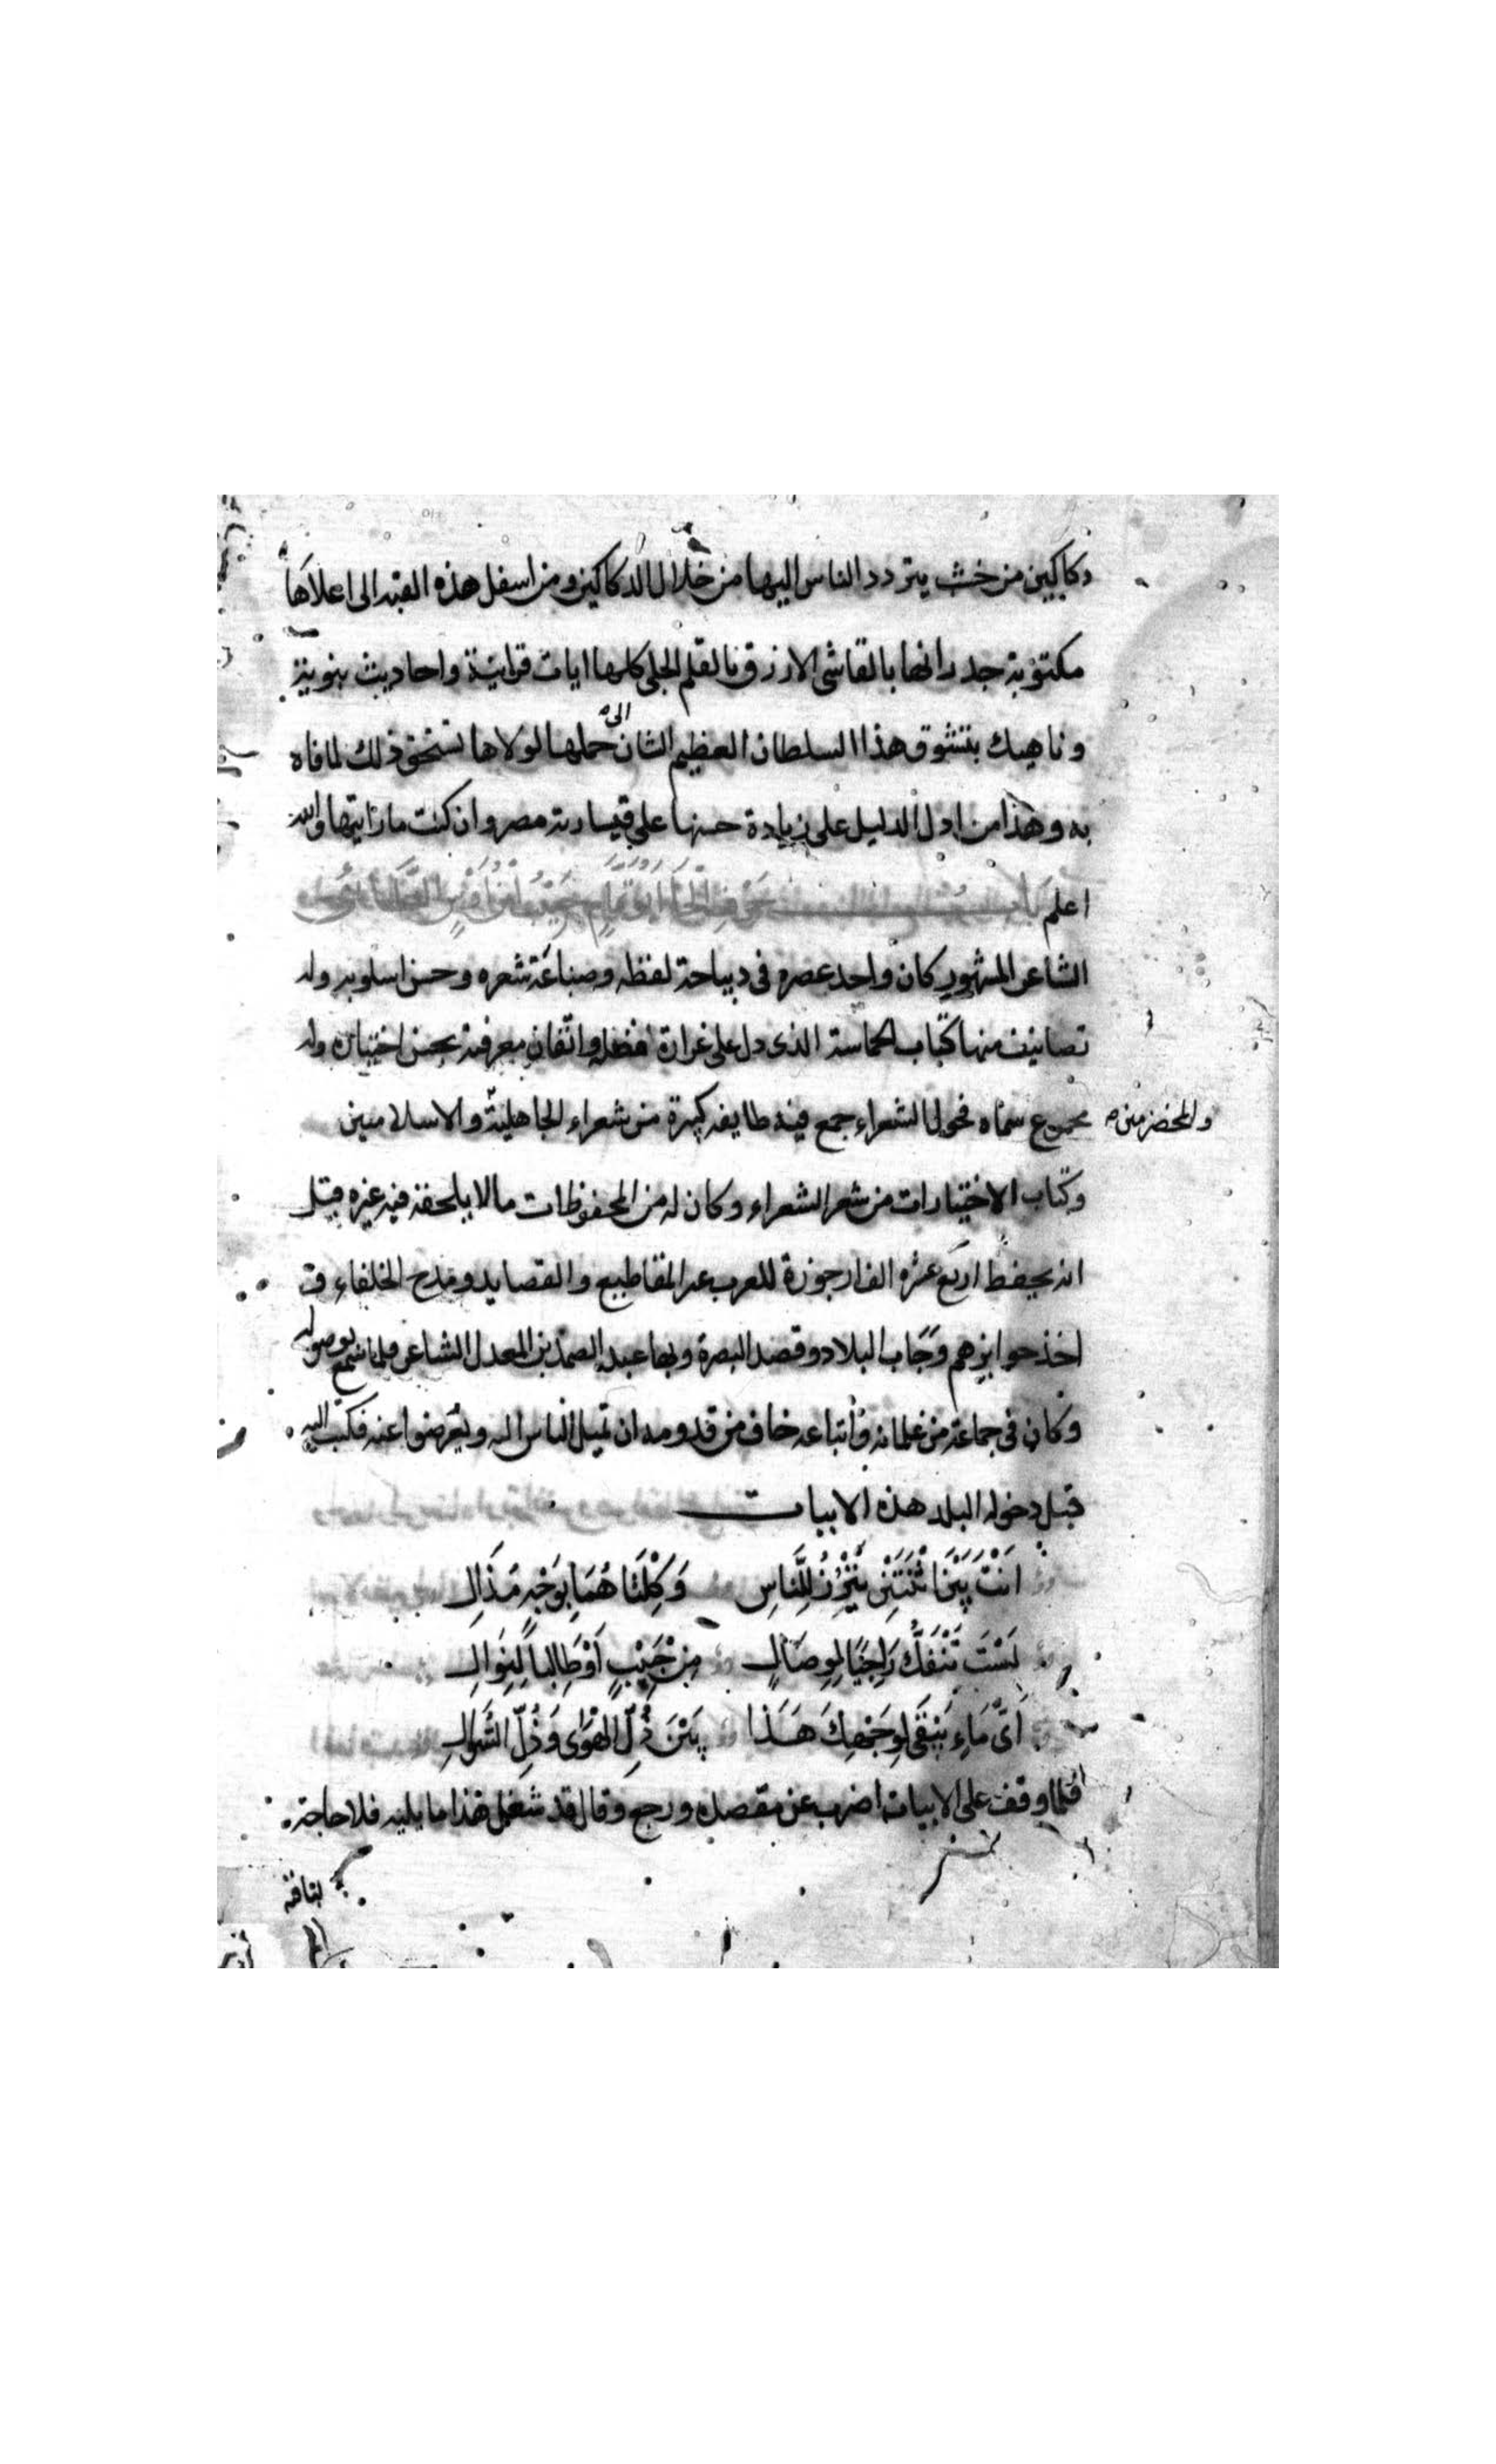 دكاكين من خشب يتردد الناس اليها من خلال الدكاكين ومن اسفل هذه القبه الى اعلاها
مكتوبة جدرانها بالقاشى الازرق بالقلم الجلى كلها ايات قرانية واحاديث نبوية
وناهيك بتشوق هذا السلطان العظيم الشان الى حملها لولاها تستحق ذلك لما فاه
به وهذا من اول الدليل على زيادة حسنها على قيسارية مصر وان كنت ما رايتها والله
اعلم
الشاعر المشهور كان واحد عصره فى ديباجة لفظه وصناعة شعره وحسن اسلوبه وله
تصانيف منها كتاب الحماسة الذى دل على غزارة فضله واتقان معرفته بحسن اختياره وله
مجموع سماه فحول الشعراء جمع فيه طايفه كبيرة من شعراء الجاهلية والاسلاميين
والمخضرمين
وكتاب الاختيارات من شعر الشعراء وكان له من المحفوظات ما لا يلحقه فيه غيره قيل
انه يحفظ اربع عشره الف ارجوزة للعرب غير المقاطيع والقصايد ومدح الخلفاء و
اخذ جوايزهم وجاب البلاد وقصد البصرة وبها عبد الصمد بن المعدل الشاعر فلما سمع بوصوله
وكان فى جماعة من غلمانه واتباعه خاف من قدومه ان تميل الناس اليه ويعرضوا عنه فكتب اليه
قبل دخوله البلد هذه الابيات
اَنْتَ بَيْنَ اثْنَتَيْنِ تَبْرُزُ لِلنَّاسِ وَكِلْتَاهُمَا بِوَجْهٍ مُذَالِ
لَسْتَ تَنْفَكُّ رَاجِيًا لِوِصَالٍ مِنْ حَبِيْبٍ اَوْ طَالِباً لِنَوَالِ
اَىُّ مَاءٍ يَبْقَى لِوَجْهِكَ هَذَا بَيْنَ ذُلِّ الْهَوٰى وَذُلِّ السُّؤَالِ
فلما وقف على الابيات اضرب عن مقصده ورجع وقال قد شغل هذا ما يليه فلا حاجة
لنا فيه